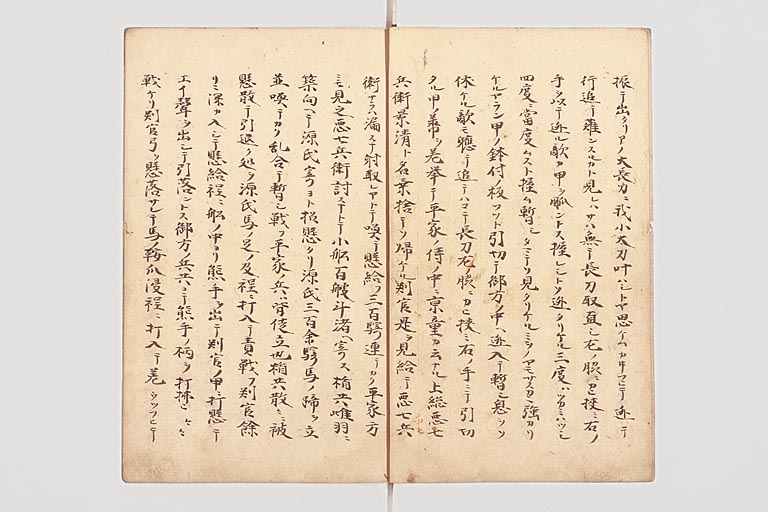 振テ出タリアノ大長刀ニ我小太刀叶ハシトヤ思ケム カヰフテ逃テ
行追テ難ンスルカト見レハサハ無テ長刀取直シ左ノ脇ニカヒ挟ミ右ノ
手ヲ以テ逃ル敵ノ甲ノ𩊱ントス捶レントノ逃タリケル三度ハツカミハツシ
四度ニ當度ムスト捶ム暫シタマテソ見タリケルミヲノヤモサスカニ強カリ
ケルヤラン甲ノ鉢付ノ板フツト引切テ御方ノ中ヘ逃入テ暫シ息ツツ
休ケル敵モ應テ追テハコテ長刀左ノ脇ニカヒ挟ミ右ノ手ニテ引切
タル甲ノ𩊱ヲ差挙テ平家ノ侍ノ中ニ京童カ云ナル上総悪七
兵衛景清ト名乗捨テソ帰ケル判官是ヲ見給テ悪七兵
衛ナラハ漏ステ射取レヤトテ喚テ懸給ヘハ三百騎連テカク平家方
ニモ見之悪七兵衛討ステトテ小船百艘斗渚ヘ寄ス楯共雌羽ニ
築向ヘテ源氏寄ヨト招懸タリ源氏三百余騎馬ノ障ヲ立
並喚テカク乱合テ暫シ戦フ平家ノ兵ハ皆徒立也楯共散ニ被
懸散テ引退ク処ヲ源氏馬ノ足ノ及程ニ打入テ責戦フ判官餘
リニ深カ入シテ懸給程ニ船ノ中ヨリ熊手ヲ出テ判官ノ甲ニ打懸テ
エイ聲ヲ出シテ引落ントス御方ノ兵共ニ熊手ノ柄ヲ打拂ヒ〻〻
戦ケリ判官弓ヲ懸落サレテ馬ノ鞍爪浸程ニ打入テ差ウツフヒテ